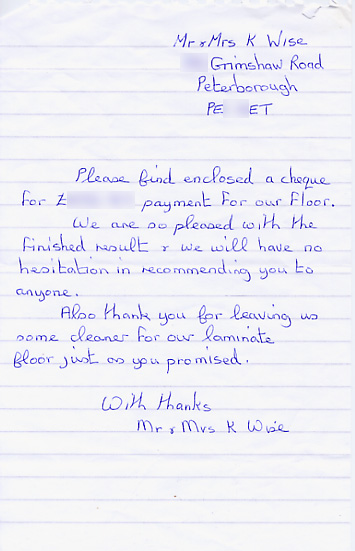 Mr & Mrs K Wise
Grimshaw Road
Peterborough
PE ET
Please find enclosed a cheque
for £ payment for our floor.
We are so pleased with the
finished result & we will have no
hesitation in recommending you to
anyone.
Also thank you for leaving us
some cleaner for our laminate
floor just as you promised.
With thanks
Mr & Mrs K Wise